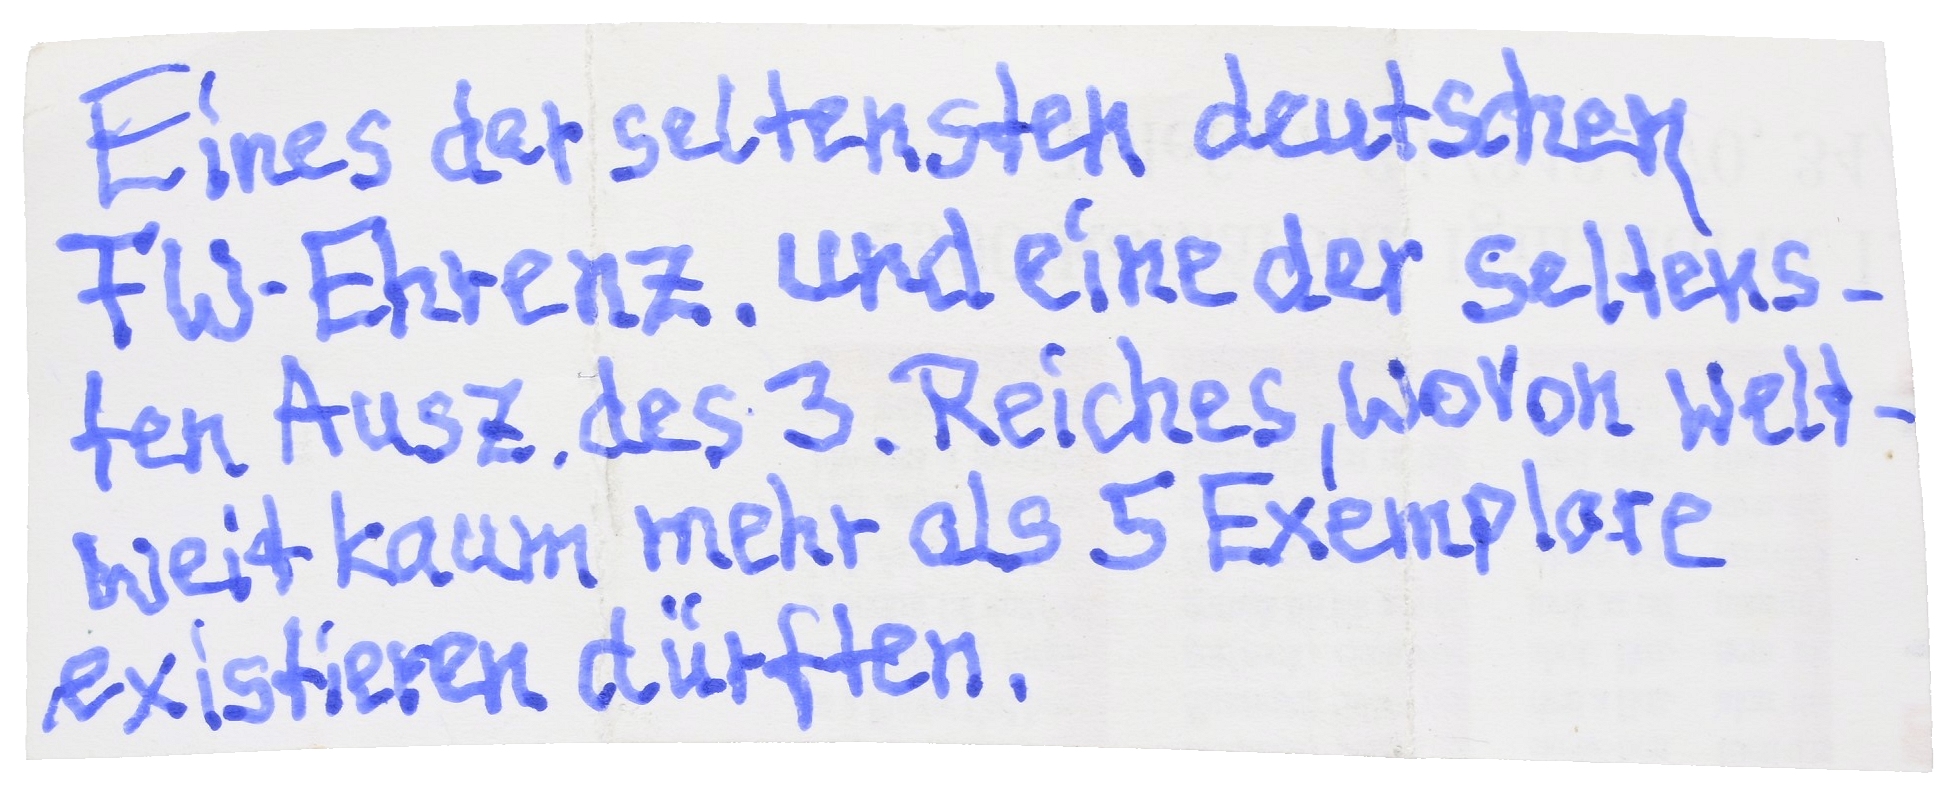 Eines der seltensten deutschen
FW-Ehrenz. und eine der seltens-
ten Ausz. des 3. Reiches, wovon welt-
weit kaum mehr als 5 Exemplare
existieren dürften.